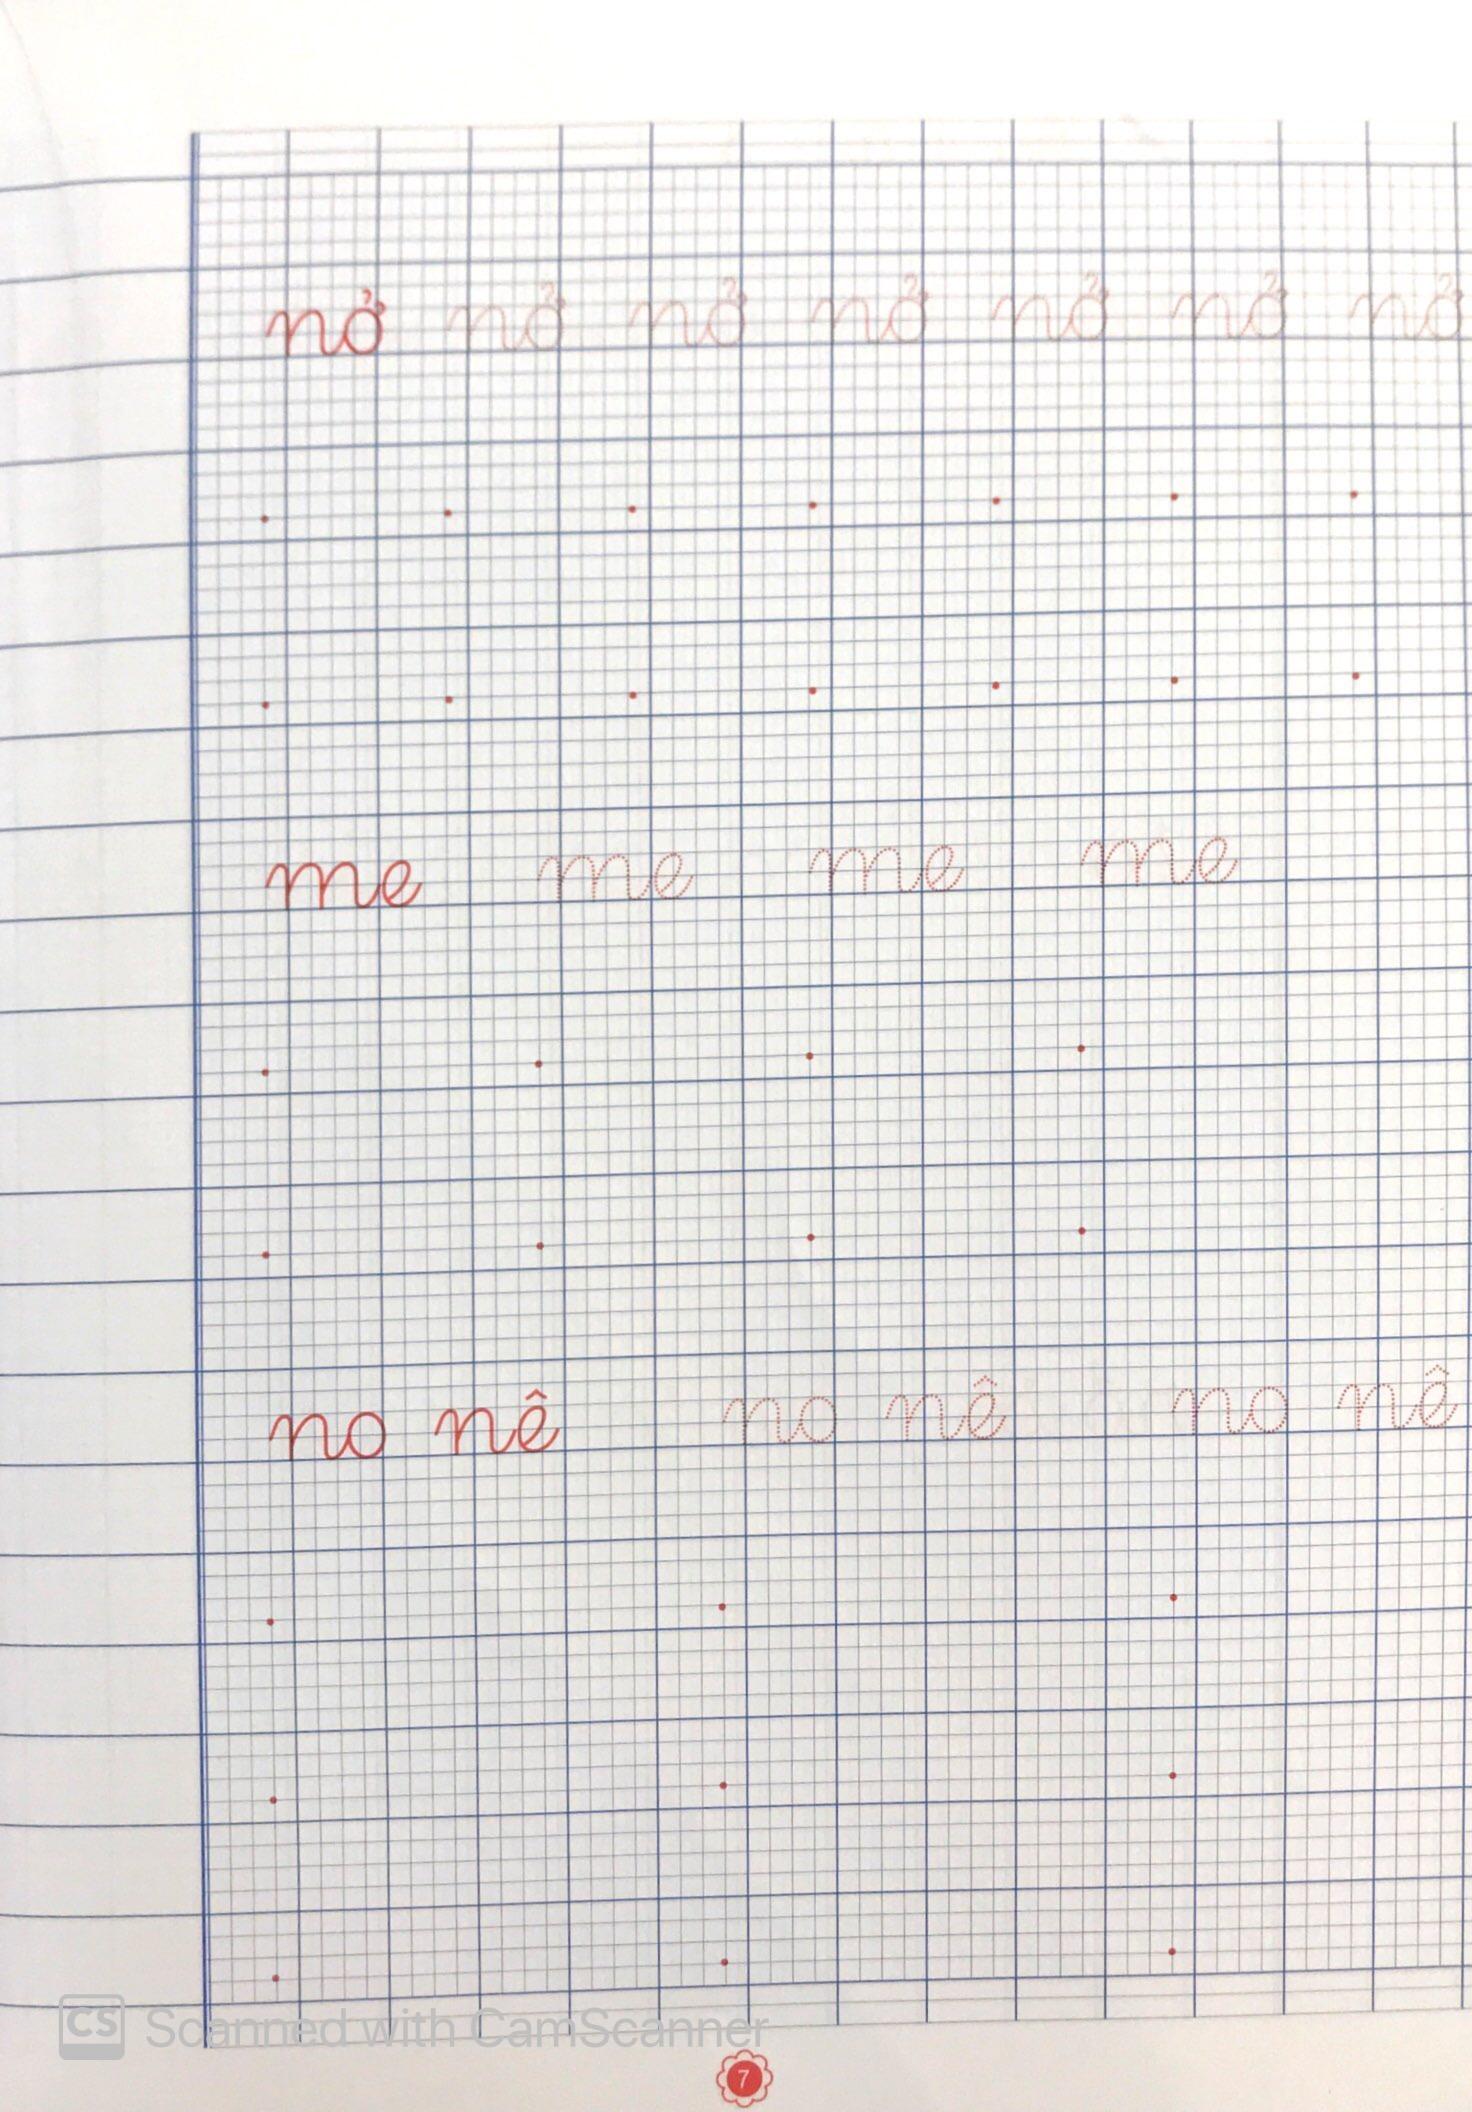 nở nở nở nở nở nở nở
me me me me
no nê no nê no nê
CS Scanned with CamScanner
7